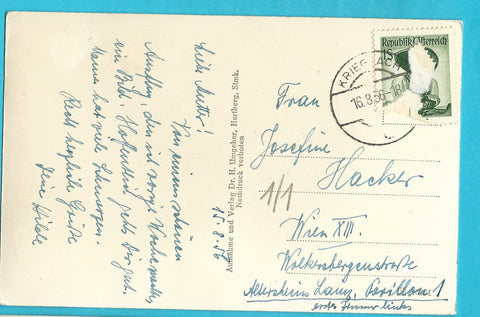 Liebe Mutter!
Von einem schönen
Ausflug, den ich vorige Woche machte,
ein Bild. Hoffentlich gehts Dir gut.
Mama hat viele Schmerzen.
Recht herzliche Grüße
Deine Hilde
15.8.56
Aufnahme und Verlag Dr. H. Umgeher, Hartberg, Stmk.
Nachdruck verboten
Republik Österreich
16.8.56-18
Frau
Josefine
Hacker
1/1
Wien XIII.
Wolkersbergenstraße
Altersheim Lainz, Pavillon 1
erstes Zimmer links